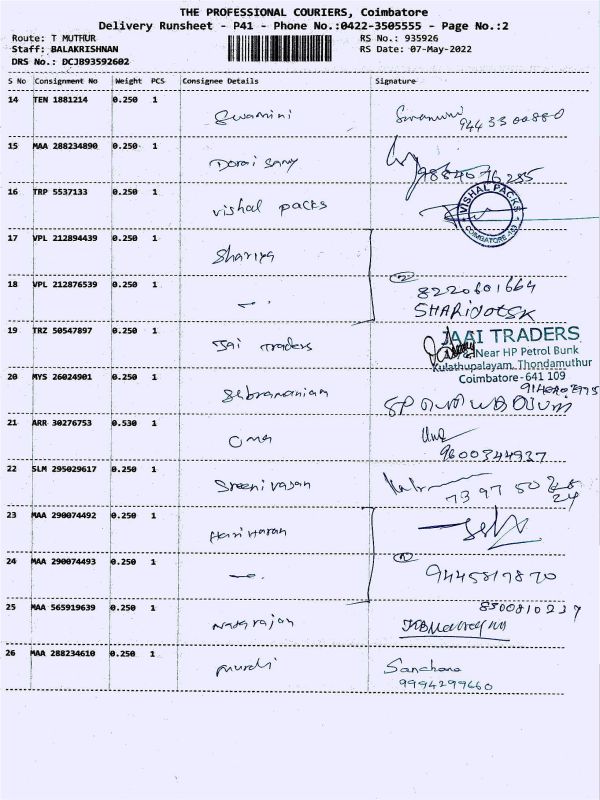 THE PROFESSIONAL COURIERS, Coimbatore
Delivery Runsheet - P41 - Phone No.:0422-3505555 - Page No.:2
Route: T MUTHUR RS No.: 935926
Staff: BALAKRISHNAN RS Date: 07-May-2022
DRS No.: DCJB93592602
S No Consignment No Weight PCS Consignee Details Signature
14 TEN 1881214 0.250 1
Swamini
15 MAA 288234890 0.250 1
Dorai Samy 9884076285
16 TRP 5537133 0.250 1
vishal packs VISHAL PACKS COIMBATORE
17 VPL 212894439 0.250 1
Shariya
18 VPL 212876539 0.250 1 2
8220601664
19 TRZ 50547897 0.250 1
Jai Traders JAAI TRADERS
Near HP Petrol Bunk
Kulathupalayam, Thondamuthur
Coimbatore-641 109
20 MYS 26024901 0.250 1
Subramanian
21 ARR 30276753 0.530 1
Uma 9600344937
22 SLM 295029617 0.250 1
Sreenivasan
23 MAA 290074492 0.250 1
Hariharan
24 MAA 290074493 0.250 1 2
9445817870
25 MAA 565919639 0.250 1 8300810237
Natarajan
26 MAA 288234610 0.250 1
Murali Sanchana
9994299660